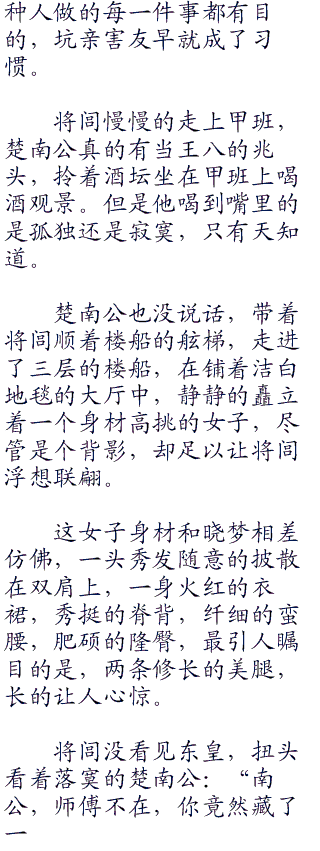 种人做的每一件事都有目
的，坑亲害友早就成了习
惯。
将闾慢慢的走上甲班，
楚南公真的有当王八的兆
头，拎着酒坛坐在甲班上喝
酒观景。但是他喝到嘴里的
是孤独还是寂寞，只有天知
道。
楚南公也没说话，带着
将闾顺着楼船的舷梯，走进
了三层的楼船，在铺着洁白
地毯的大厅中，静静的矗立
着一个身材高挑的女子，尽
管是个背影，却足以让将闾
浮想联翩。
这女子身材和晓梦相差
仿佛，一头秀发随意的披散
在双肩上，一身火红的衣
裙，秀挺的脊背，纤细的蛮
腰，肥硕的隆臀，最引人瞩
目的是，两条修长的美腿，
长的让人心惊。
将闾没看见东皇，扭头
看着落寞的楚南公：“南
公，师傅不在，你竟然藏了
一